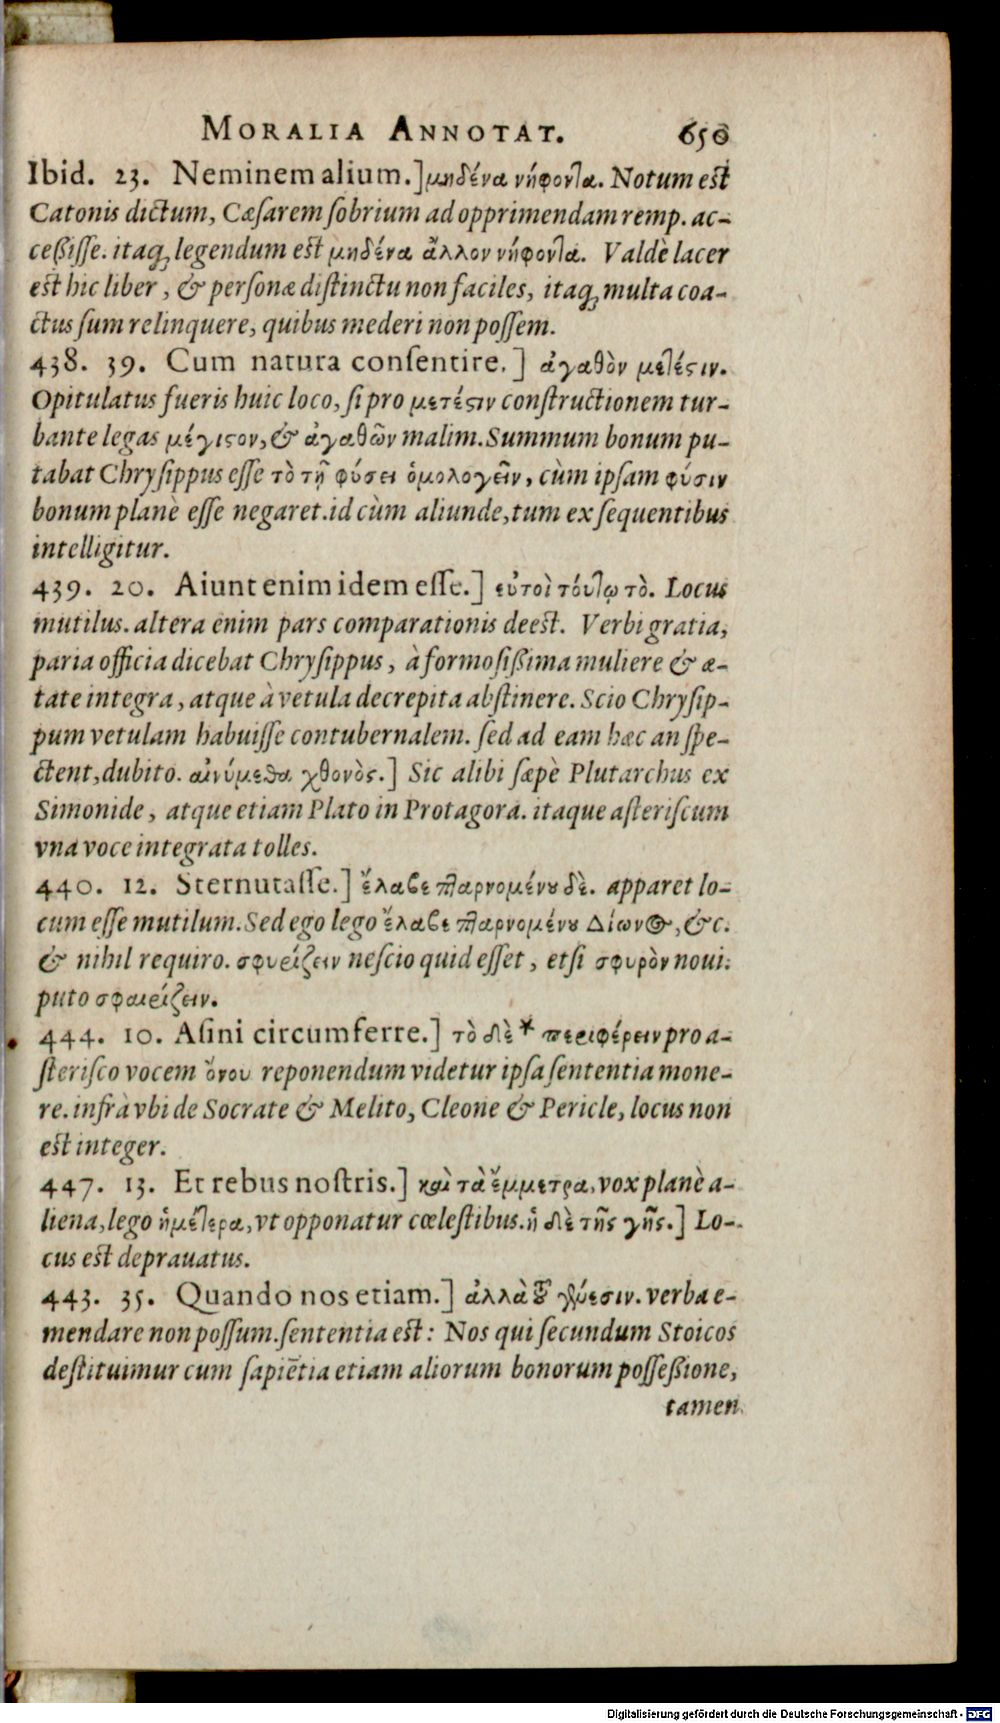 MORALIA ANNOTAT. 650
Ibid. 23. Neminem alium.] μηδένα νήφοντα. Notum est
Catonis dictum, Cæsarem sobrium ad opprimendam remp. ac-
ceßisse. itaq; legendum est μηδένα ἄλλον νήφοντα. Valdè lacer
est hic liber, & personæ distinctu non faciles, itaq; multa coa-
ctus sum relinquere, quibus mederi non possem.
438. 39. Cum natura consentire.] ἀγαθὸν μετέςιν.
Opitulatus fueris huic loco, si pro μετέςιν constructionem tur-
bante legas μέγιςον, & ἀγαθῶν malim. Summum bonum pu-
tabat Chrysippus esse τὸ τῇ φύσει ὁμολογεῖν, cùm ipsam φύσιν
bonum planè esse negaret. id cùm aliunde, tum ex sequentibus
intelligitur.
439. 20. Aiunt enim idem esse.] εὐτοὶ τούτῳ τὸ. Locus
mutilus. altera enim pars comparationis deest. Verbi gratia,
paria officia dicebat Chrysippus, à formosißima muliere & æ-
tate integra, atque à vetula decrepita abstinere. Scio Chrysip-
pum vetulam habuisse contubernalem. sed ad eam hæc an spe-
ctent, dubito. αἰνύμεθα χθονὸς.] Sic alibi sæpè Plutarchus ex
Simonide, atque etiam Plato in Protagora. itaque asteriscum
vna voce integrata tolles.
440. 12. Sternutasse.] ἔλαβε πταρνομένου δὲ. apparet lo-
cum esse mutilum. Sed ego lego ἔλαβε πταρνομένου Δίωνος, &c.
& nihil requiro. σφυρίζειν nescio quid esset, etsi σφυρὸν noui:
puto σφαιρίζειν.
444. 10. Asini circumferre.] τὸ δὲ * περιφέρειν pro a-
sterisco vocem ὄνου reponendum videtur ipsa sententia mone-
re. infrà vbi de Socrate & Melito, Cleone & Pericle, locus non
est integer.
447. 13. Et rebus nostris.] καὶ τὰ ἔμμετρα, vox planè a-
liena, lego ἡμέτερα, vt opponatur cœlestibus. ἡ δὲ τῆς γῆς.] Lo-
cus est deprauatus.
443. 35. Quando nos etiam.] ἀλλὰ verba e-
mendare non possum. sententia est: Nos qui secundum Stoicos
destituimur cum sapiẽtia etiam aliorum bonorum possessione,
tamen
Digitalisierung gefördert durch die Deutsche Forschungsgemeinschaft - DFG